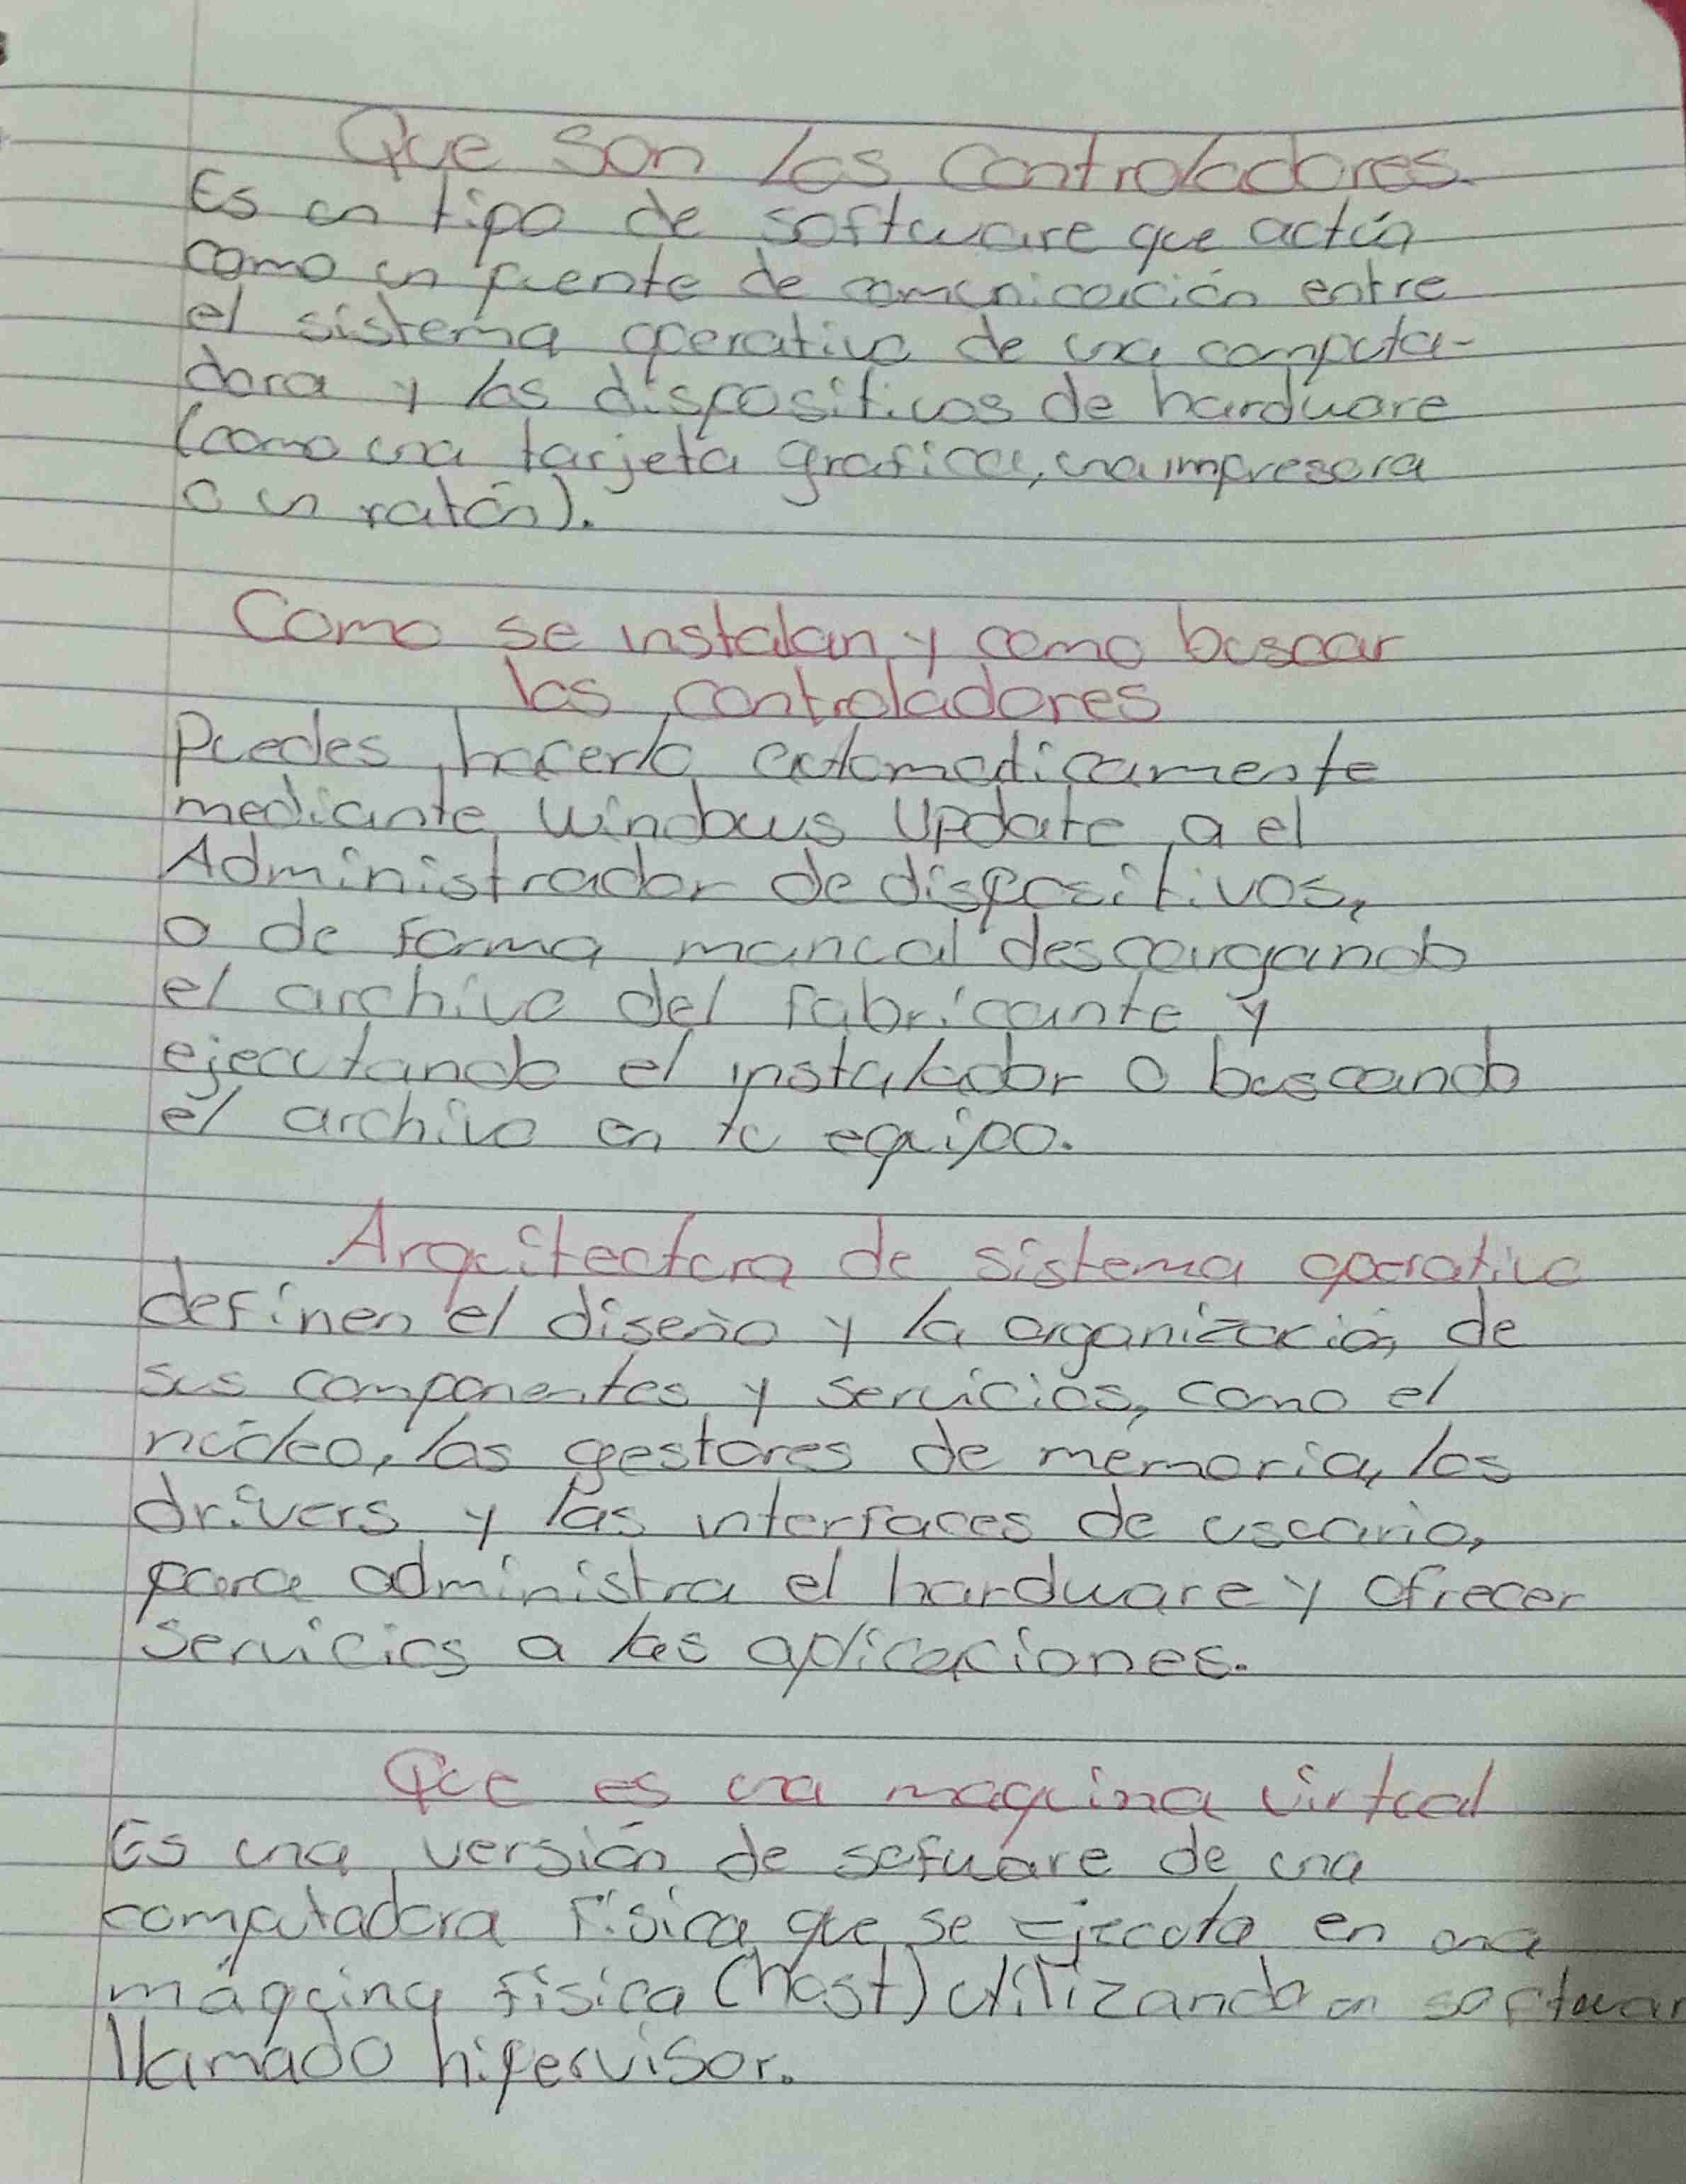 Que son los controladores.
Es un tipo de software que actúa
como un puente de comunicación entre
el sistema operativo de una computa-
dora y los dispositivos de hardware
(como una tarjeta grafica, una impresora
o un ratón).
Como se instalan y como buscar
los controladores
Puedes hacerlo automaticamente
mediante Windows Update o el
Administrador de dispositivos,
o de forma manual descargando
el archivo del fabricante y
ejecutando el instalador o buscando
el archivo en tu equipo.
Arquitectura de sistema operativo
definen el diseño y la organización de
sus componentes y servicios, como el
núcleo, los gestores de memoria, los
drivers y las interfaces de usuario,
para administra el hardware y ofrecer
servicios a las aplicaciones.
Que es una maquina virtual
Es una versión de sofware de una
computadora física que se ejecuta en una
máquina física (host) utilizando un softwar
llamado hipervisor.